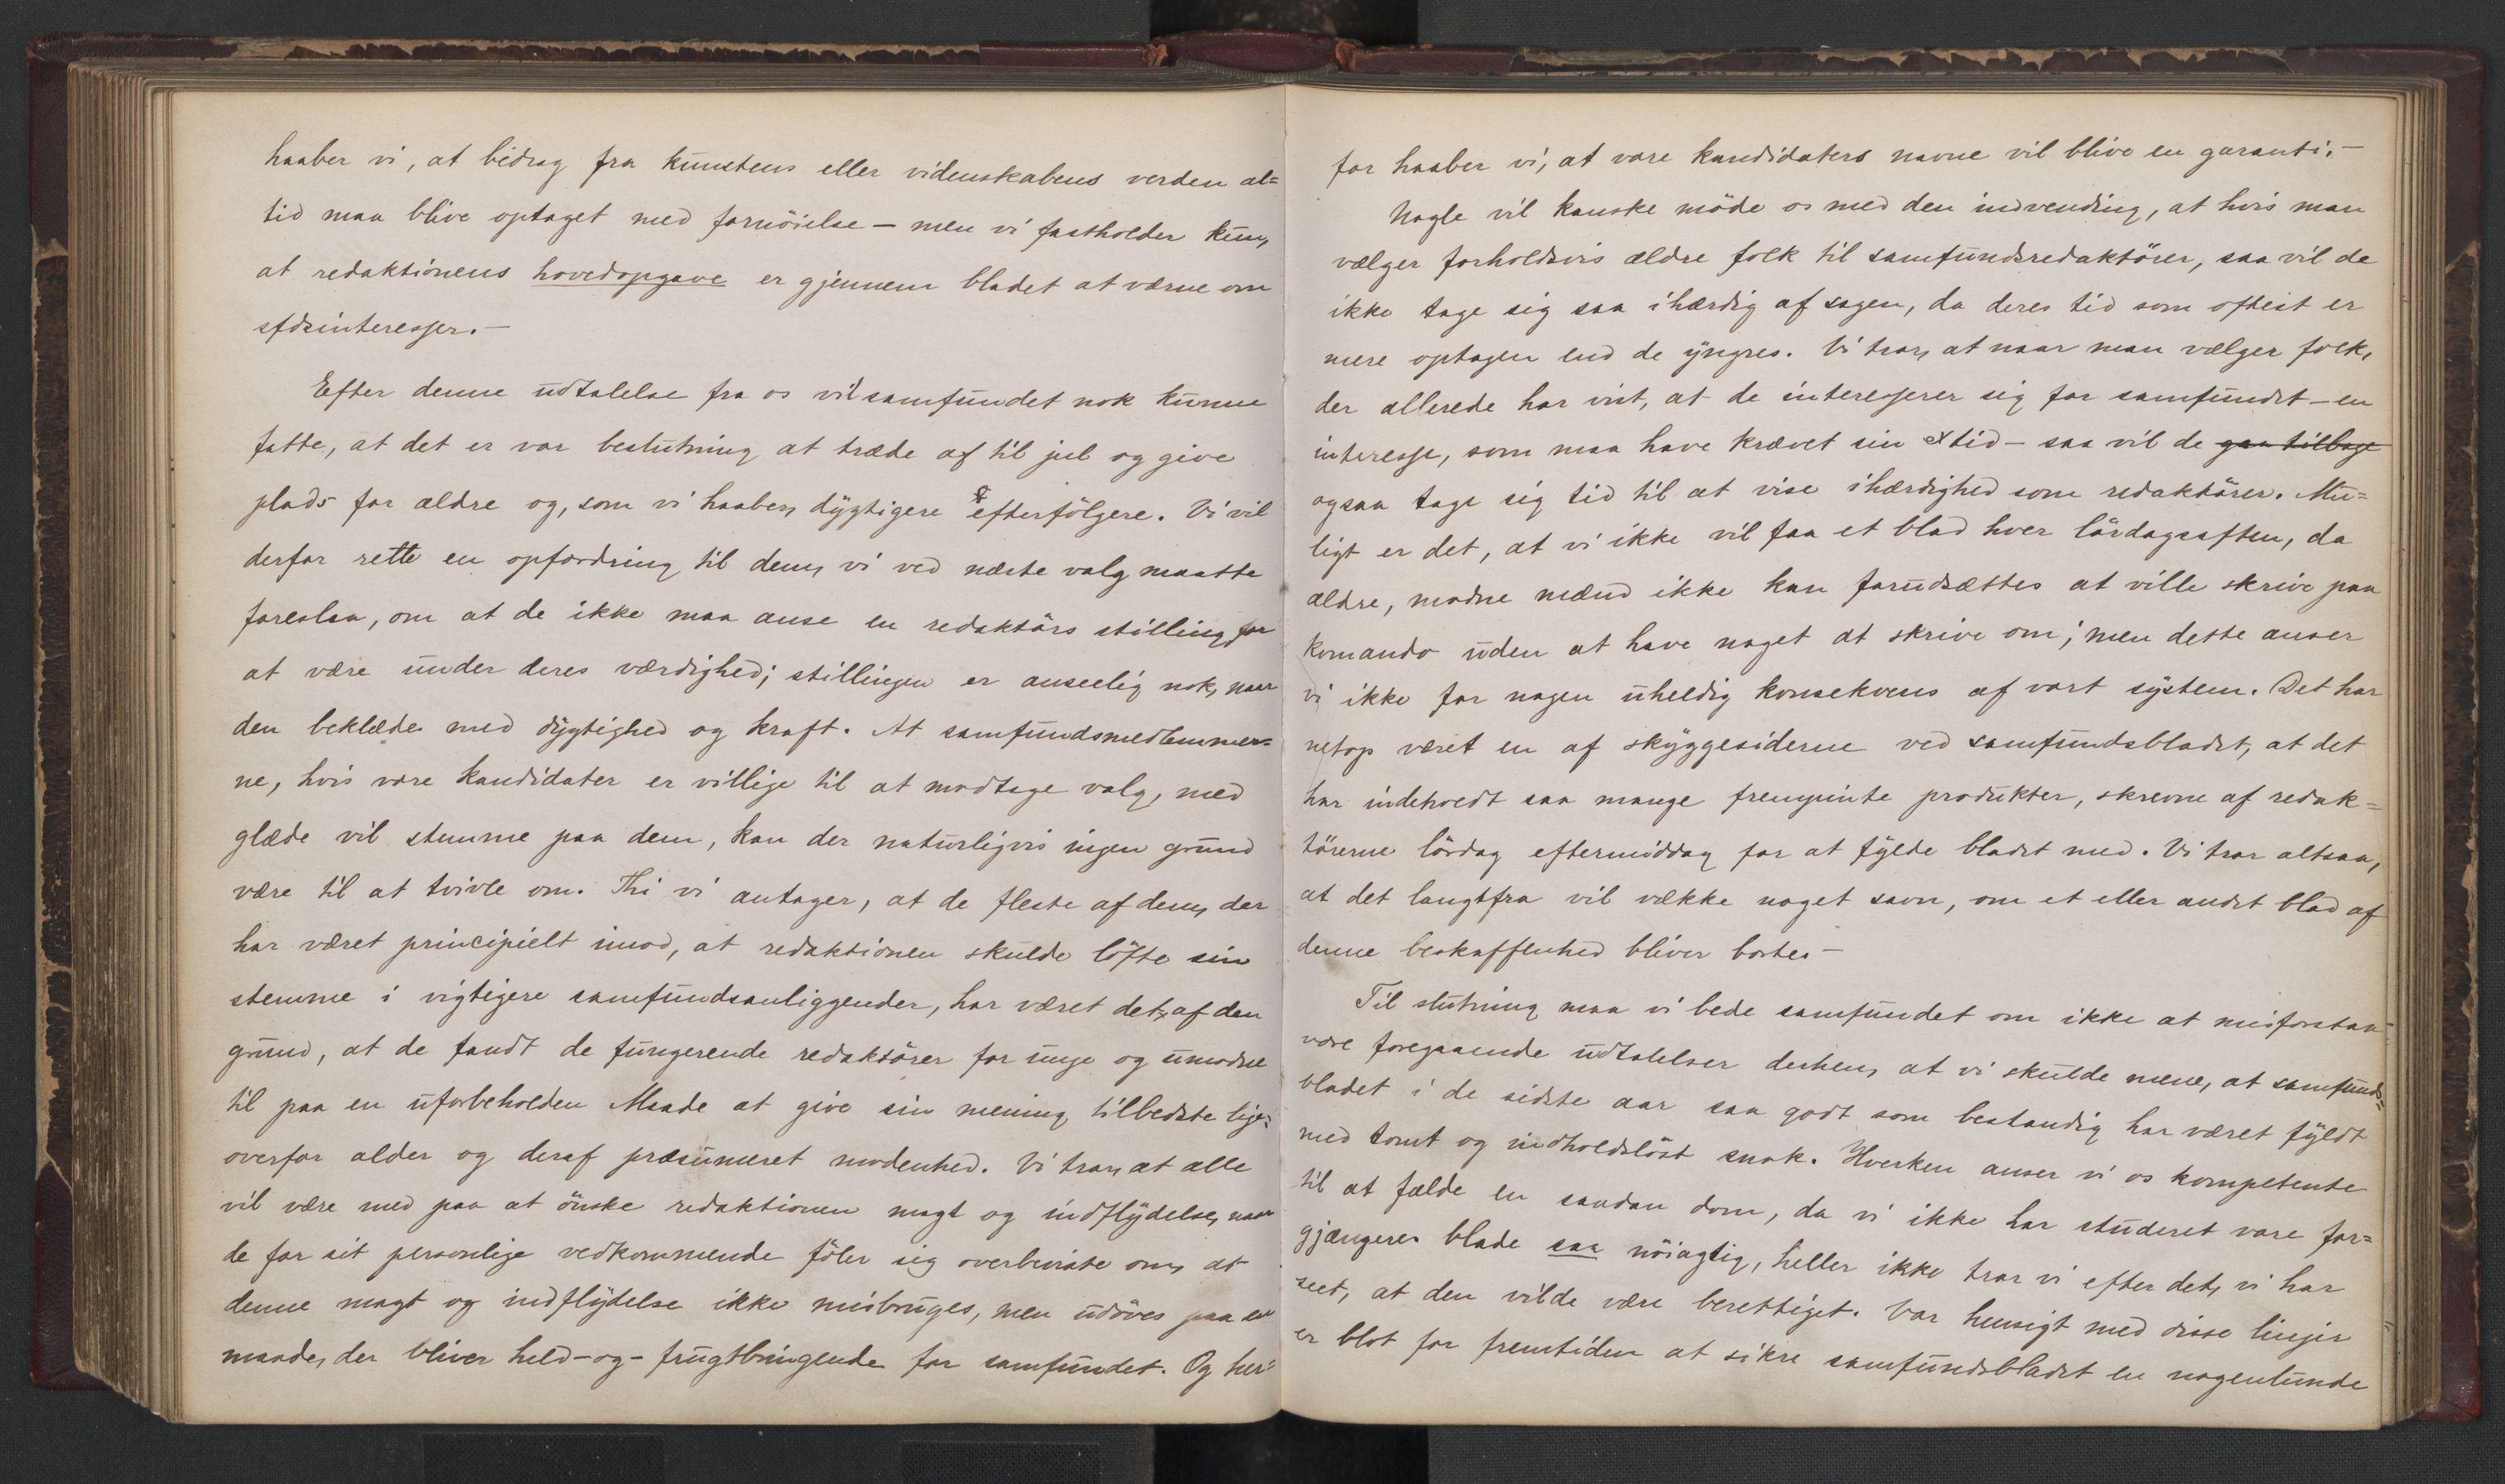 haaber vi, at bidrag fra kunstens eller videnskabens verden al=
tid maa blive optaget med fornöielse – men vi fastholder kun,
at redaktionens hovedopgave er gjennem bladet at værne om
sfdsinteresser. –
Efter denne udtalelse fra os vil samfundet nok kunne
fatte, at det er vor beslutning at træde af til jul og give
plads for ældre og, som vi haaber, dygtigere efterfölgere. Vi vil
derfor rette en opfordring til dem, vi ved næste valg maatte
foreslaa, om at de ikke maa anse en redaktörs stilling for
at være under deres værdighed; stillingen er anseelig nok, naar
den beklædes med dygtighed og kraft. At samfundsmedlemmer=
ne, hvis vore kandidater er villige til at modtage valg, med
glæde vil stemme paa dem, kan der naturligvis ingen grund
være til at tvivle om. Thi vi antager, at de fleste af dem, der
har været principielt imod, at redaktionen skulde löfte sin
stemme i vigtigere samfundsanliggender, har været det, af den
grund, at de fandt de fungerende redaktörer for unge og umodne
til paa en uforbeholden Maade at give sin mening tilbedste lige=
overfor alder og deraf præsumeret modenhed. Vi tror, at alle
vil være med paa at önske redaktionen magt og indflydelse, naar
de for sit personlige vedkommende föler sig overbeviste om, at
denne magt og indflydelse ikke misbruges, men udöves paa en
maade, der bliver held-og-frugtbringende for samfundet. Og her=
for haaber vi, at vore kandidaters navne vil blive en garanti. –
Nogle vil kanske möde os med den indvending, at hvis man
vælger forholdsvis ældre folk til samfundsredaktörer, saa vil de
ikke tage sig saa ihærdig af sagen, da deres tid som oftest er
mere optagen end de yngres. Vi tror, at naar man vælger folk,
der allerede har vist, at de interesserer sig for samfundet – en
interesse, som maa have krævet sin tid – saa vil de gaa tilbage
ogsaa tage sig tid til at vise ihærdighed som redaktörer. Mu=
ligt er det, at vi ikke vil faa et blad hver lördagsaften, da
ældre, modne mænd ikke kan forudsættes at ville skrive paa
komando uden at have noget at skrive om; men dette anser
vi ikke for nogen uheldig konsekvens af vort system. Det har
netop været en af skyggesiderne ved samfundsbladet, at det
har indeholdt saa mange frempinte produkter, skrevne af redak=
törerne lördag eftermiddag for at fylde bladet med. Vi tror altsaa,
at det langtfra vil vække noget savn, om et eller andet blad af
denne beskaffenhed bliver borte. –
Til slutning maa vi bede samfundet om ikke at misforstaa
vore foregaaende udtalelser derhen, at vi skulde mene, at samfunds=
bladet i de sidste aar saa godt som bestandig har været fyldt
med tomt og indholdslöst snak. Hverken anser vi os kompetente
til at fælde en saadan dom, da vi ikke har studeret vore for=
gjængeres blade saa nöiagtig, heller ikke tror vi efter det, vi har
seet, at den vilde være berettiget. Vor hensigt med disse linjer
er blot for fremtiden at sikre samfundsbladet en nogenlunde